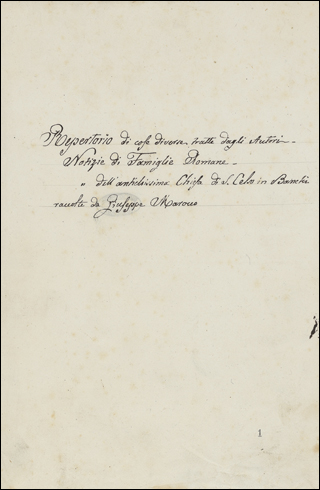 Repertorio di cose diverse tratte dagli Autori -
Notizie di Famiglie Romane -
" dell'antichissima Chiesa di S. Celso in Banchi
raccolte da Giuseppe
1